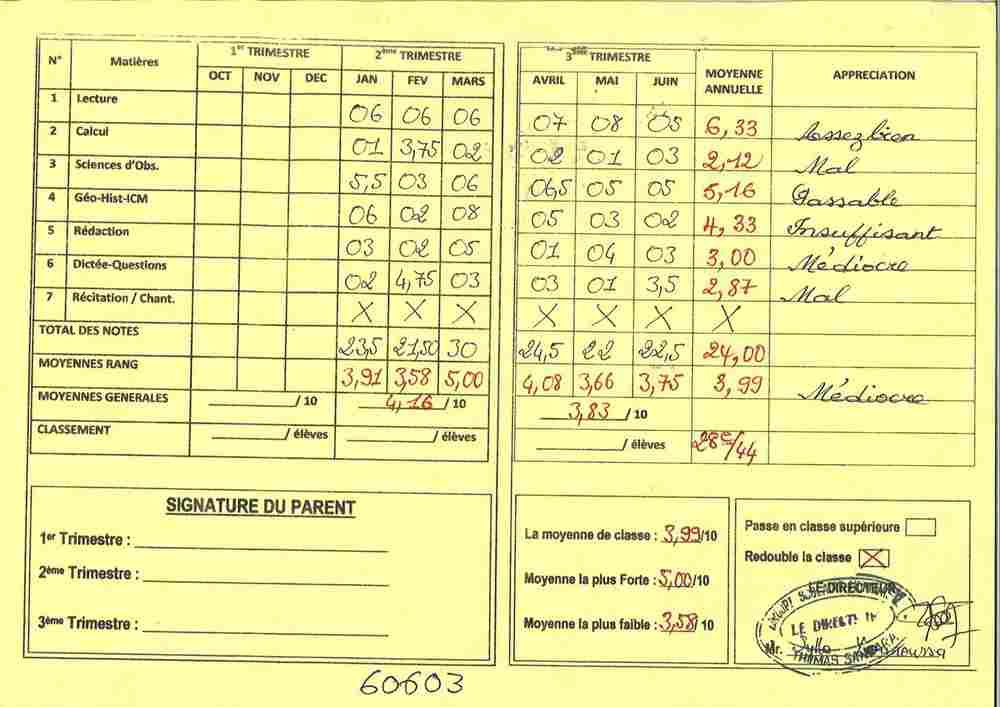 N° Matières 1er TRIMESTRE 2ème TRIMESTRE 3ème TRIMESTRE MOYENNE ANNUELLE APPRECIATION
OCT NOV DEC JAN FEV MARS AVRIL MAI JUIN
1 Lecture 06 06 06 07 08 05 6,33 Assez bien
2 Calcul 01 3,75 02 02 01 03 2,12 Mal
3 Sciences d'Obs. 5,5 03 06 06,5 05 05 5,16 Passable
4 Géo-Hist-ICM 06 02 08 05 03 02 4,33 Insuffisant
5 Rédaction 03 02 05 01 04 03 3,00 Médiocre
6 Dictée-Questions 02 4,75 03 03 01 3,5 2,87 Mal
7 Récitation / Chant. X X X X X X X
TOTAL DES NOTES 23,5 21,50 30 24,5 22 22,5 24,00
MOYENNES RANG 3,91 3,58 5,00 4,08 3,66 3,75 3,99 Médiocre
MOYENNES GENERALES / 10 4,16 / 10 3,83 / 10
CLASSEMENT / élèves / élèves / élèves 28e/44
SIGNATURE DU PARENT
1er Trimestre :
2ème Trimestre :
3ème Trimestre :
La moyenne de classe : 3,99/10
Moyenne la plus Forte : 5,00/10
Moyenne la plus faible : 3,58/ 10
Passe en classe supérieure
Redouble la classe X
LE DIRECTEUR
LE DIRECTEUR
Mr. Sylla Moussa
THOMAS SANKARA
60603